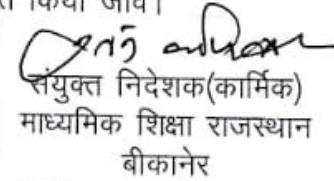 किया जावे।
संयुक्त निदेशक(कार्मिक)
माध्यमिक शिक्षा राजस्थान
बीकानेर